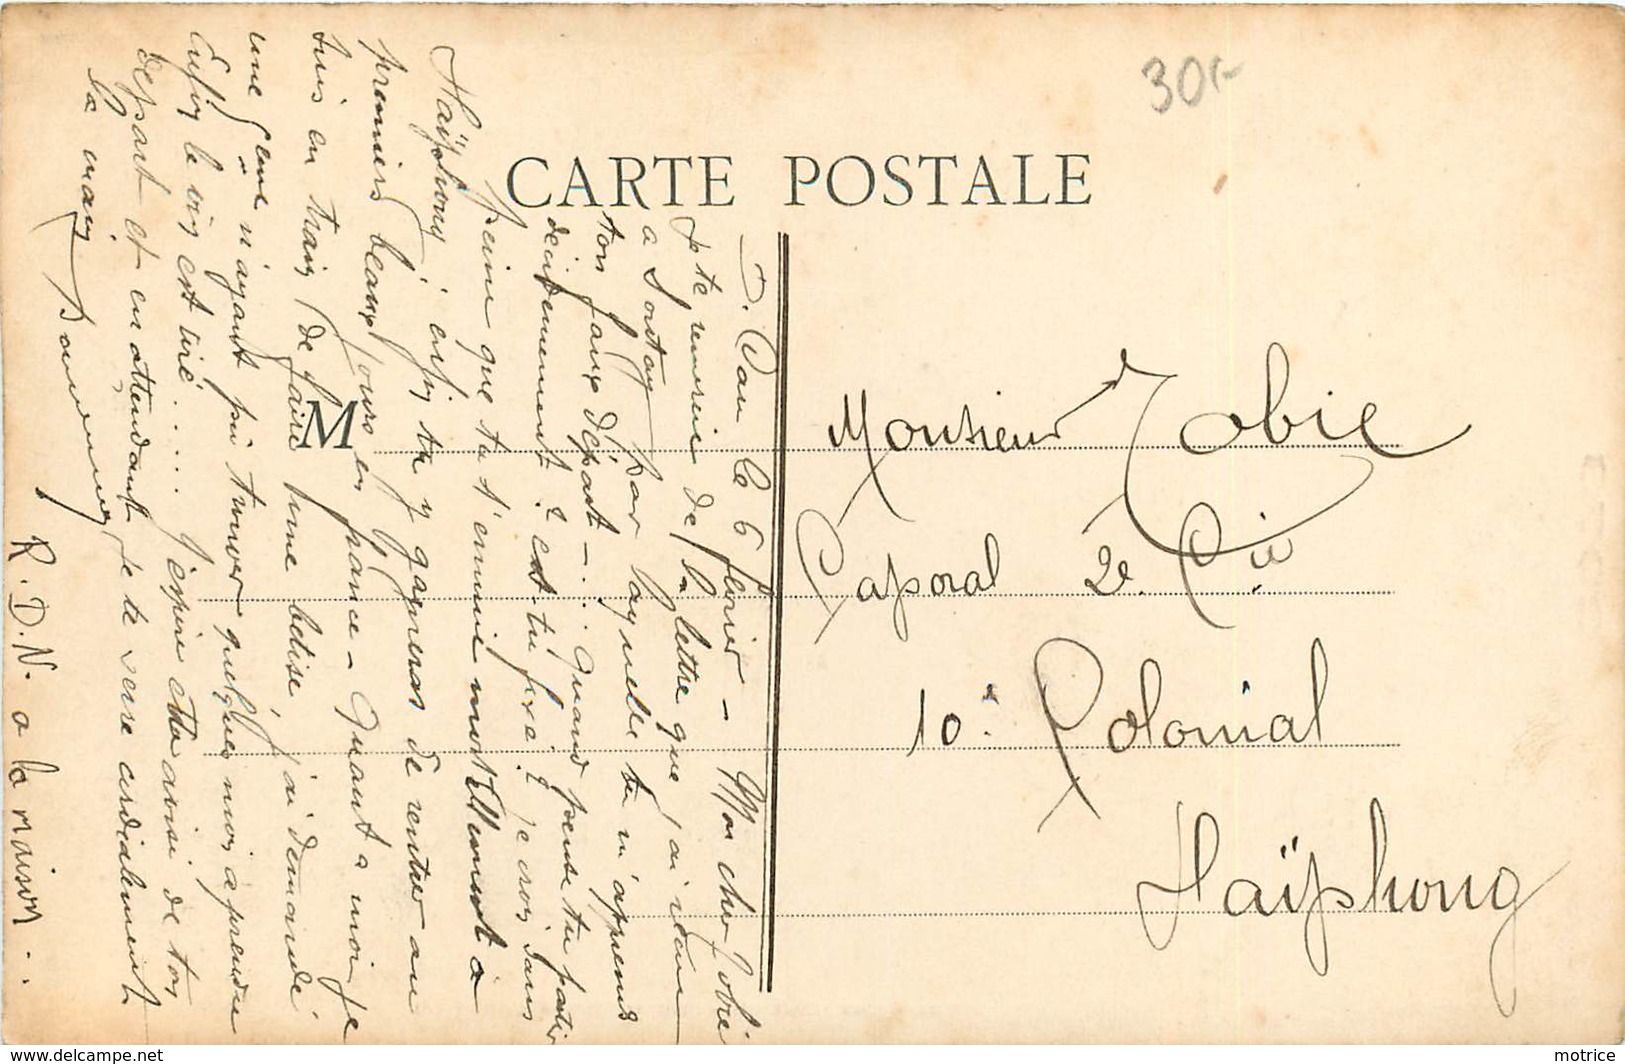 30-
CARTE POSTALE
D. Van le 6 février - Mon cher Tobie
Je te remercie de la lettre que j'ai reçu
a Sontay par laquelle tu m'apprends
ton faux départ - ... Quand pense tu partir
décisivement ? est tu fixé ? je crois sans
peine que tu t'ennuie mortellement à
Haïphong, enfin tu y gagneras de rentrer au
premiers beaux jours en france - Quant a moi je
suis en train de faire une bêtise, j'ai demandé
une 3eme n'ayant pu trouver quelques mois a prendre
Enfin le vin est tiré ..... J'espère être avisé de ton
départ et en attendant je te serre cordialement
la main
R.D.N. a la maison ..
M
Monsieur Tobie
Caporal 2e Cie
10e Colonial
Haïphong
www.delcampe.net
motrice